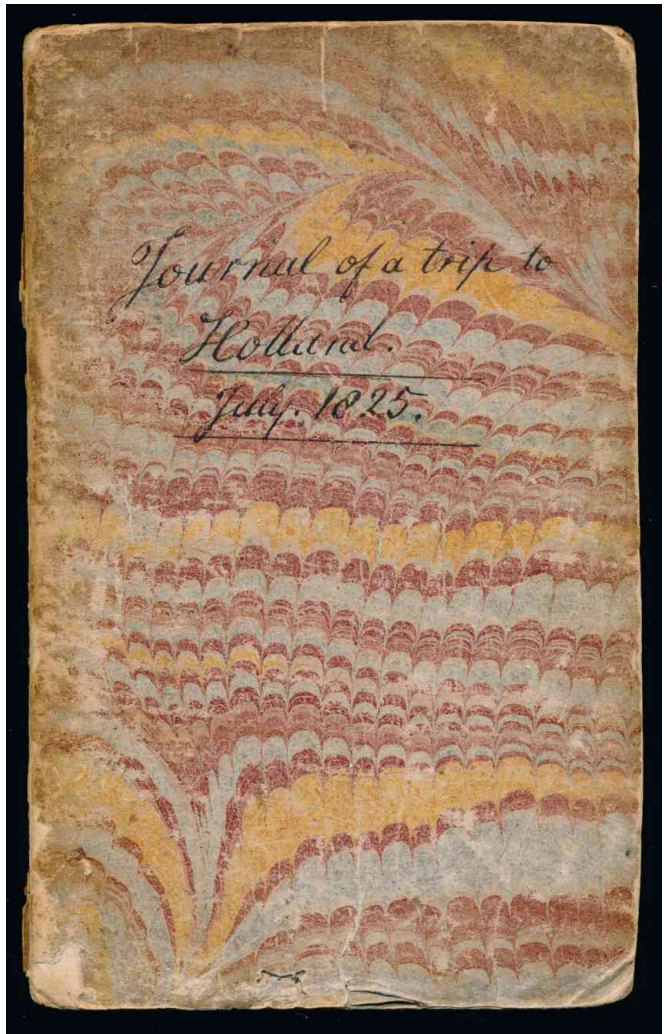 Journal of a trip to
Holland.
July. 1825.